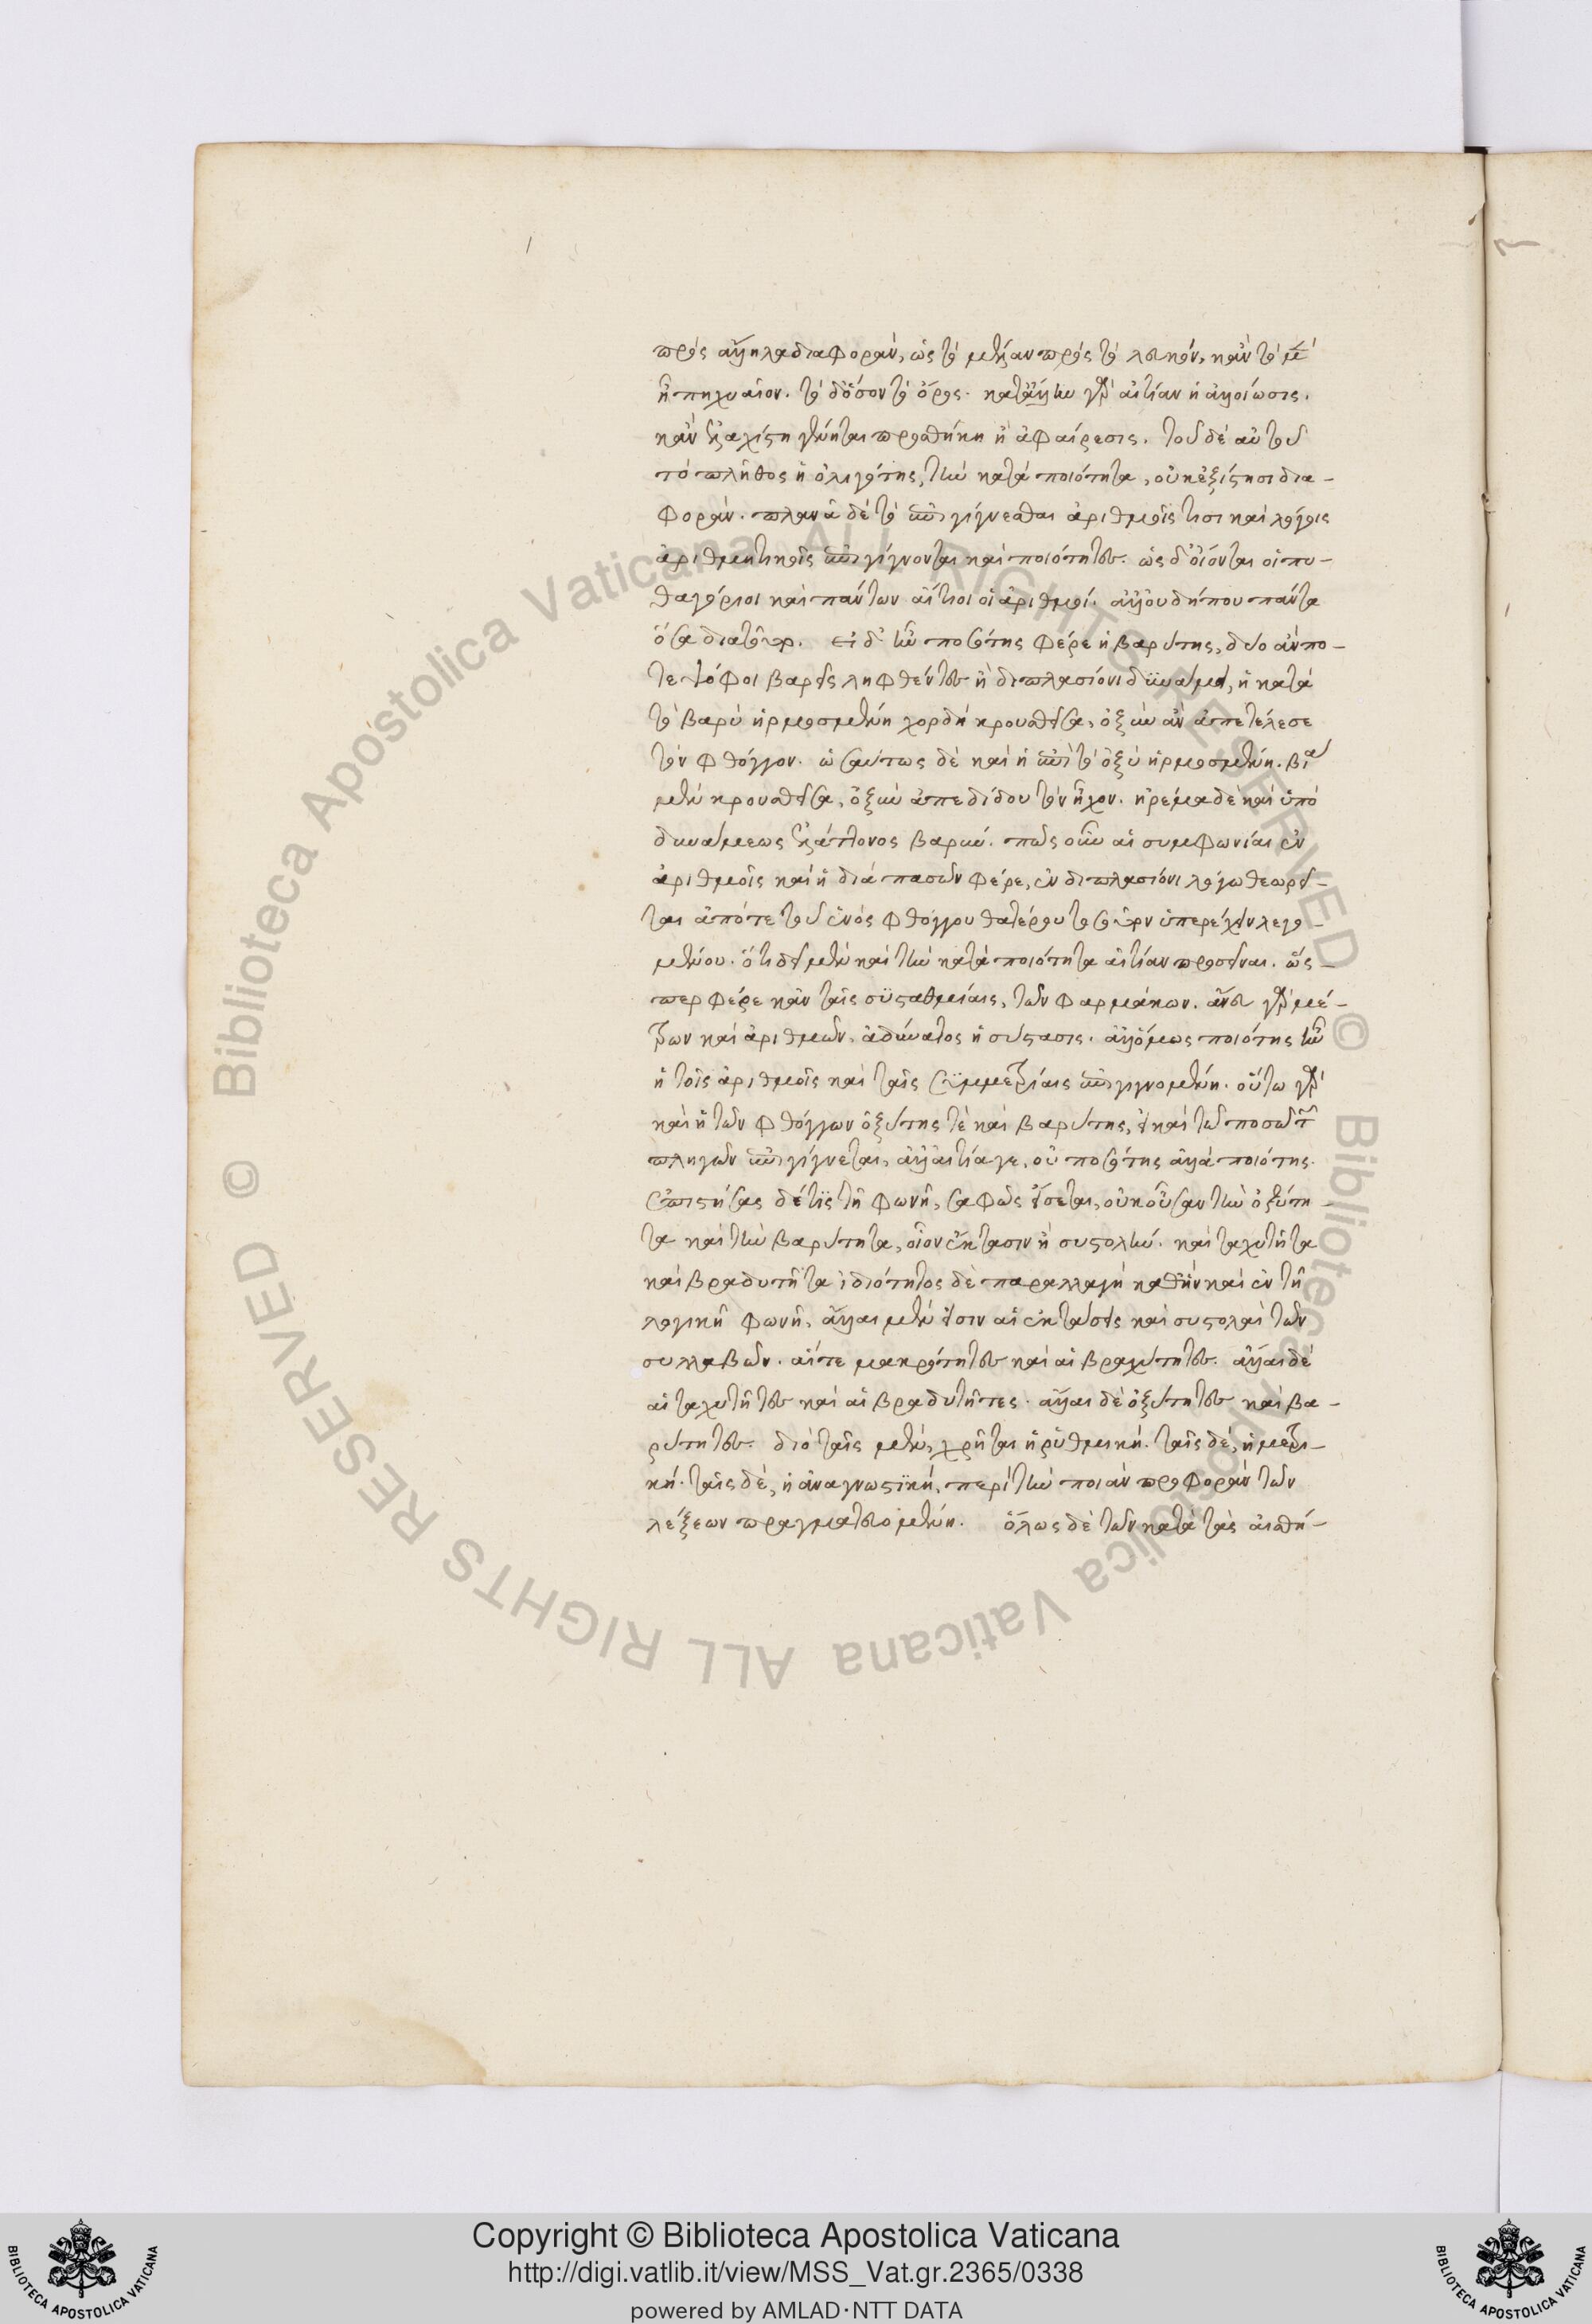 πρὸς ἄλληλα διαφορὰν, ὡς τὸ μέλαν πρὸς τὸ λευκόν, κἂν τὸ μὲν
ᾖ πηχυαῖον. τὸ δ' ὅσον τὸ ὄρος. κατ' ἄλλην γὰρ αἰτίαν ἡ ἀλλοίωσις.
κἂν ἐλαχίστη γένηται προσθήκη ἢ ἀφαίρεσις. τοῦ δὲ αὐτοῦ
τὸ πλῆθος ἢ ὀλιγότης, τὴν κατὰ ποιότητα, οὐκ ἐξίστησι δια-
φοράν. πλανᾷ δὲ τὸ ἐπιγίγνεσθαι ἀριθμοῖς τισι καὶ λόγοις
ἀριθμητικοῖς ἐπιγίγνονται καὶ ποιότητες. ὡς δ' οἴονται οἱ πυ-
θαγόρειοι καὶ πάντων αἴτιοι οἱ ἀριθμοί. ἀλλ' οὐ δήπου πάντα
ὅσα διὰ τοῦτο. εἰ δ' ἦν ποσότης φέρε ἡ βαρύτης, δύο ἄν πο-
τε ψόφοι βαρεῖς ληφθέντες ἢ διπλασίονι δυνάμει, ἡ κατὰ
τὸ βαρὺ ἡρμοσμένη χορδὴ κρουσθεῖσα, ὀξὺν ἂν ἀπετέλεσε
τὸν φθόγγον. ὡσαύτως δὲ καὶ ἡ ἐπὶ τὸ ὀξὺ ἡρμοσμένη. βίᾳ
μὲν κρουσθεῖσα, ὀξὺν ἀπεδίδου τὸν ἦχον. ἠρέμα δὲ καὶ ὑπὸ
δυνάμεως ἐλάττονος βαρύν. πῶς οὖν αἱ συμφωνίαι ἐν
ἀριθμοῖς καὶ ἡ διὰ πασῶν φέρε, ἐν διπλασίονι λόγῳ θεωρεῖ-
ται ἀπό τε τοῦ ἑνὸς φθόγγου θατέρου τοσοῦτον ὑπερέχειν λεγο-
μένου. ὅτι δεῖ μὲν καὶ τὴν κατὰ ποιότητα αἰτίαν προσεῖναι. ὥς-
περ φέρε κἀν ταῖς συσταθμίαις, τῶν φαρμάκων. ἄνευ γὰρ μέ-
τρων καὶ ἀριθμῶν. ἀδύνατος ἡ σύστασις. ἀλλ' ὅμως ποιότης ἦν
ἡ τοῖς ἀριθμοῖς καὶ ταῖς συμμετρίαις ἐπιγιγνομένη. οὕτω γὰρ
καὶ ἡ τῶν φθόγγων ὀξύτης τὲ καὶ βαρύτης, εἰ καὶ τῷ ποσῷ τῶν
πληγῶν ἐπιγίγνεται, ἀλλ' αἰτία γε, οὐ ποσότης ἀλλὰ ποιότης.
ἐπιστήσας δέ τις τῇ φωνῇ, σαφῶς εἴσεται, οὐκ οὖσαν τὴν ὀξύτη-
τα καὶ τὴν βαρύτητα, οἷον ἔκτασιν ἢ συστολήν. καὶ ταχυτῆτα
καὶ βραδυτῆτα ἰδιότητος δὲ παραλλαγὴ καθ' ἣν καὶ ἐν τῇ
λογικῇ φωνῇ, ἄλλαι μὲν εἰσιν αἱ ἐκτάσεις καὶ συστολαὶ τῶν
συλλαβῶν. αἵ τε μακρότητες καὶ αἱ βραχύτητες. ἄλλαι δὲ
αἱ ταχυτῆτες καὶ αἱ βραδυτῆτες. ἄλλαι δὲ ὀξύτητες καὶ βα-
ρύτητες. διὸ ταῖς μὲν, χρῆται ἡ ῥυθμική. ταῖς δὲ, ἡ μετρι-
κή. ταῖς δὲ, ἡ ἀναγνωστική, περὶ τὴν ποιὰν προφορὰν τῶν
λέξεων πραγματευομένη. ὅλως δὲ τῶν κατὰ τὰς αἰσθή-
Copyright © Biblioteca Apostolica Vaticana
http://digi.vatlib.it/view/MSS_Vat.gr.2365/0338
powered by AMLAD·NTT DATA